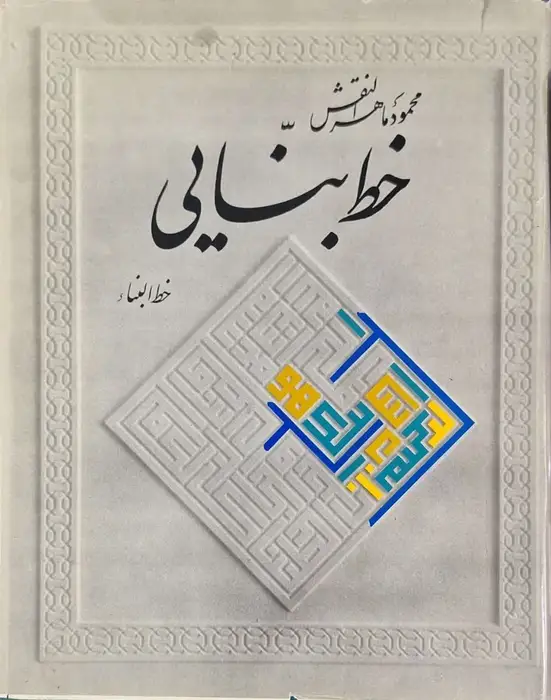 محمود ماهرالنقش
خطّ بنّایی
خط البناء